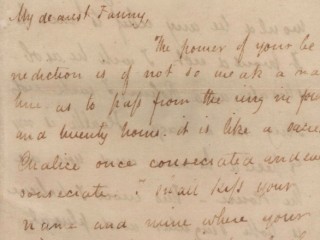 My dearest Fanny,
The power of your be
nediction is of not so weak a na
ture as to pass from the ring in four
and twenty hours. it is like a sacre
Chalice once consecrated and ever
consecrate. I shall kiss your
name and mine where your